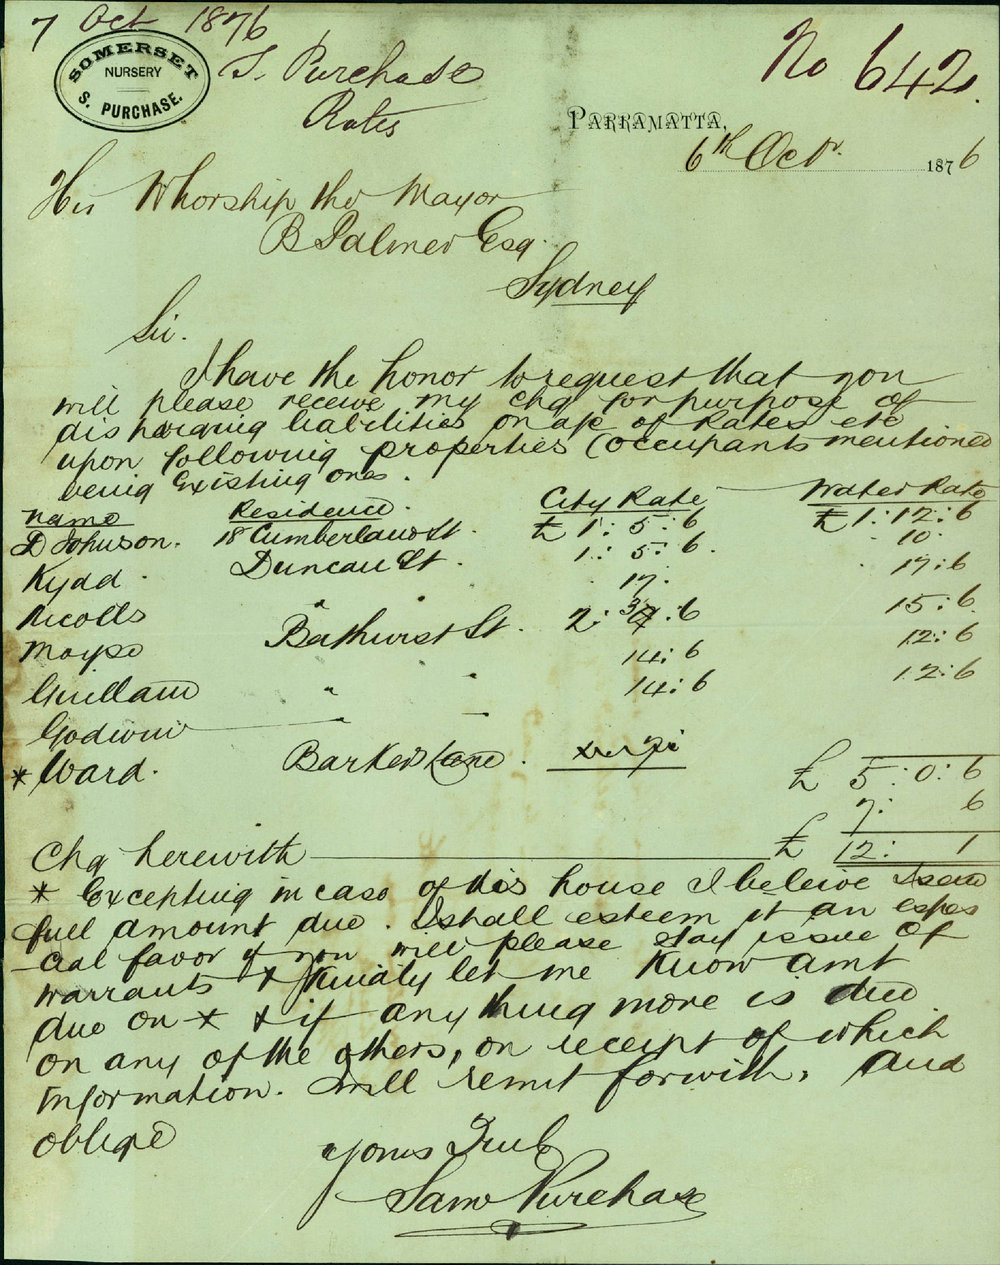 7 Oct 1876
SOMERSET
NURSERY
S. PURCHASE.
S. Purchase
Rates
No 642.
PARRAMATTA,
6th Octr. 1876
His Whorship the Mayor
B Palmer Esq.
Sydney
Sir.
I have the honor to request that you
will please receive my chq for purpose of
discharging liabilities on a/c of Rates etc
upon following properties (occupants mentioned
being Existing ones.
Name Residence. City Rate Water Rate
D Johnson. 18 Cumberland St. £ 1: 5: 6 £ 1: 12: 6
Kydd. Duncan St. 1: 5: 6. 10.
Nicolls " 17. 17: 6
Moyse Bathurst St. 2: 3: 6 15: 6
Guillam " " 14: 6 12: 6
Godwin " " 14: 6 12: 6
* Ward. Barker Lane.
£ 5: 0: 6
7: 6
Chq herewith £ 12: 1
* Excepting in case of this house I beleive I send
full amount due. I shall esteem it an espe
cial favor if you will please stay issue of
warrants & kindly let me know amt
due on * & if any thing more is due
on any of the others, on receipt of which
information. I will remit forwith, and
oblige
Yours Truly
Saml Purchase